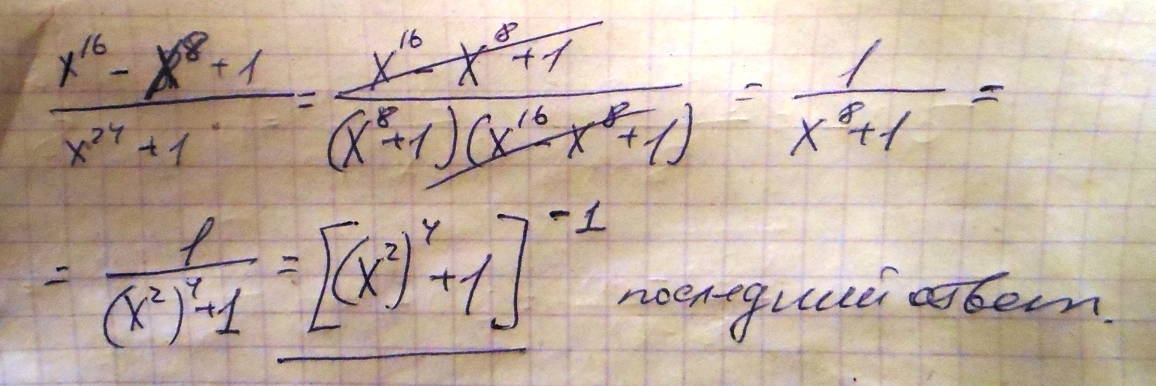 (x¹⁶ - x⁸ + 1)/(x²⁴ + 1) = (x¹⁶ - x⁸ + 1)/((x⁸+1)(x¹⁶ - x⁸ + 1)) = 1/(x⁸+1) =
= 1/((x²)⁴+1) = [(x²)⁴+1]⁻¹ последний ответ.